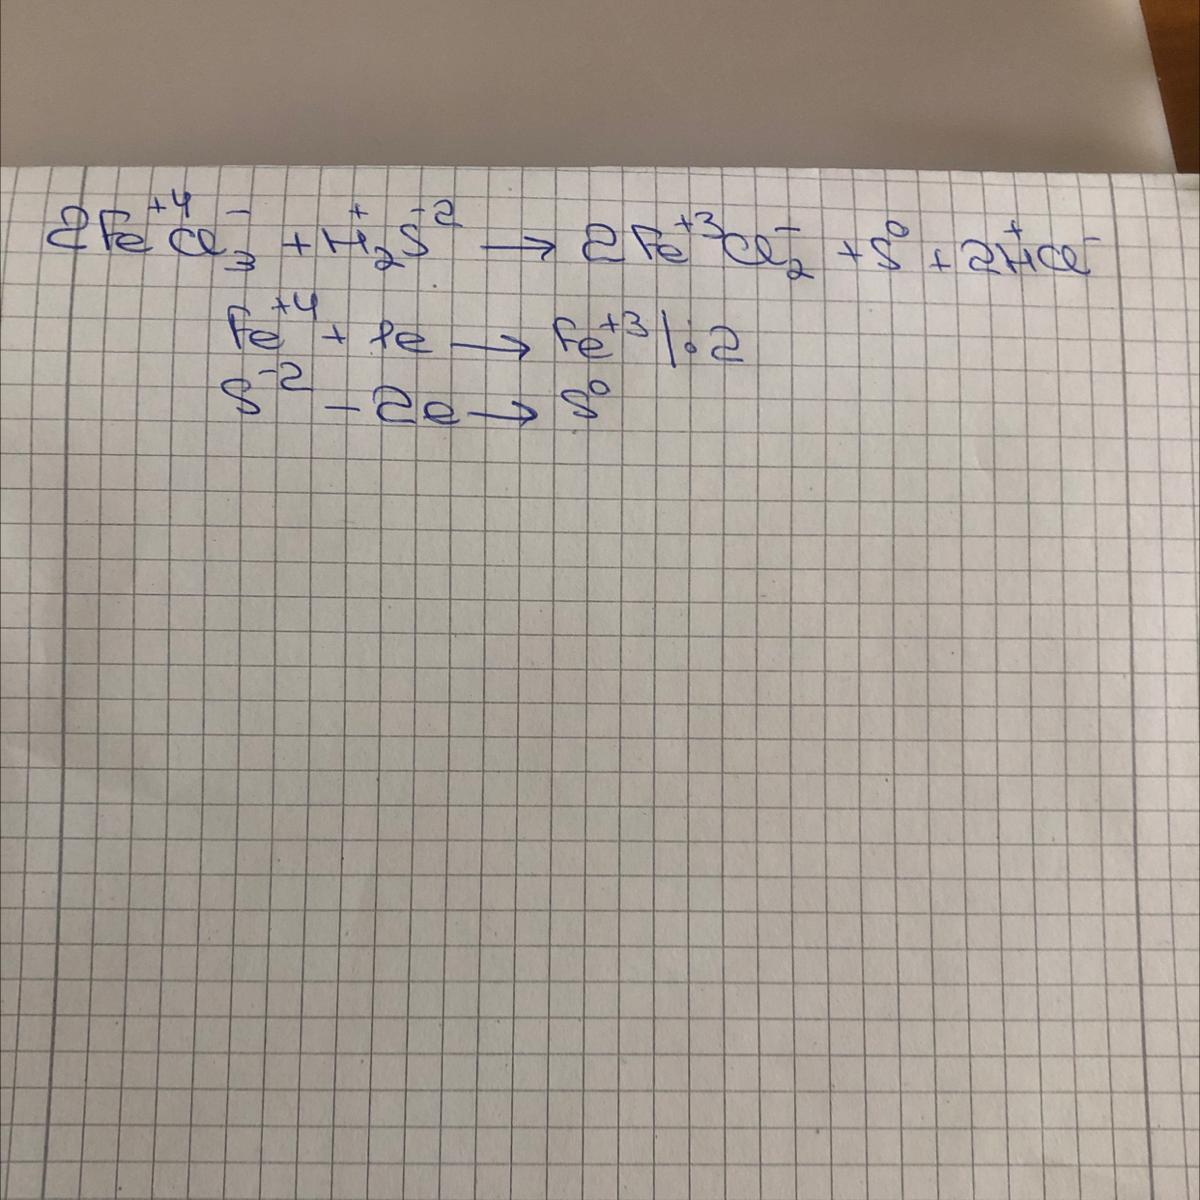 2Fe⁺⁴Cl₃⁻ + H₂⁺S⁻² → 2Fe⁺³Cl₂⁻ + S⁰ + 2H⁺Cl⁻
Fe⁺⁴ + 1e → Fe⁺³ | : 2
S⁻² - 2e → S⁰